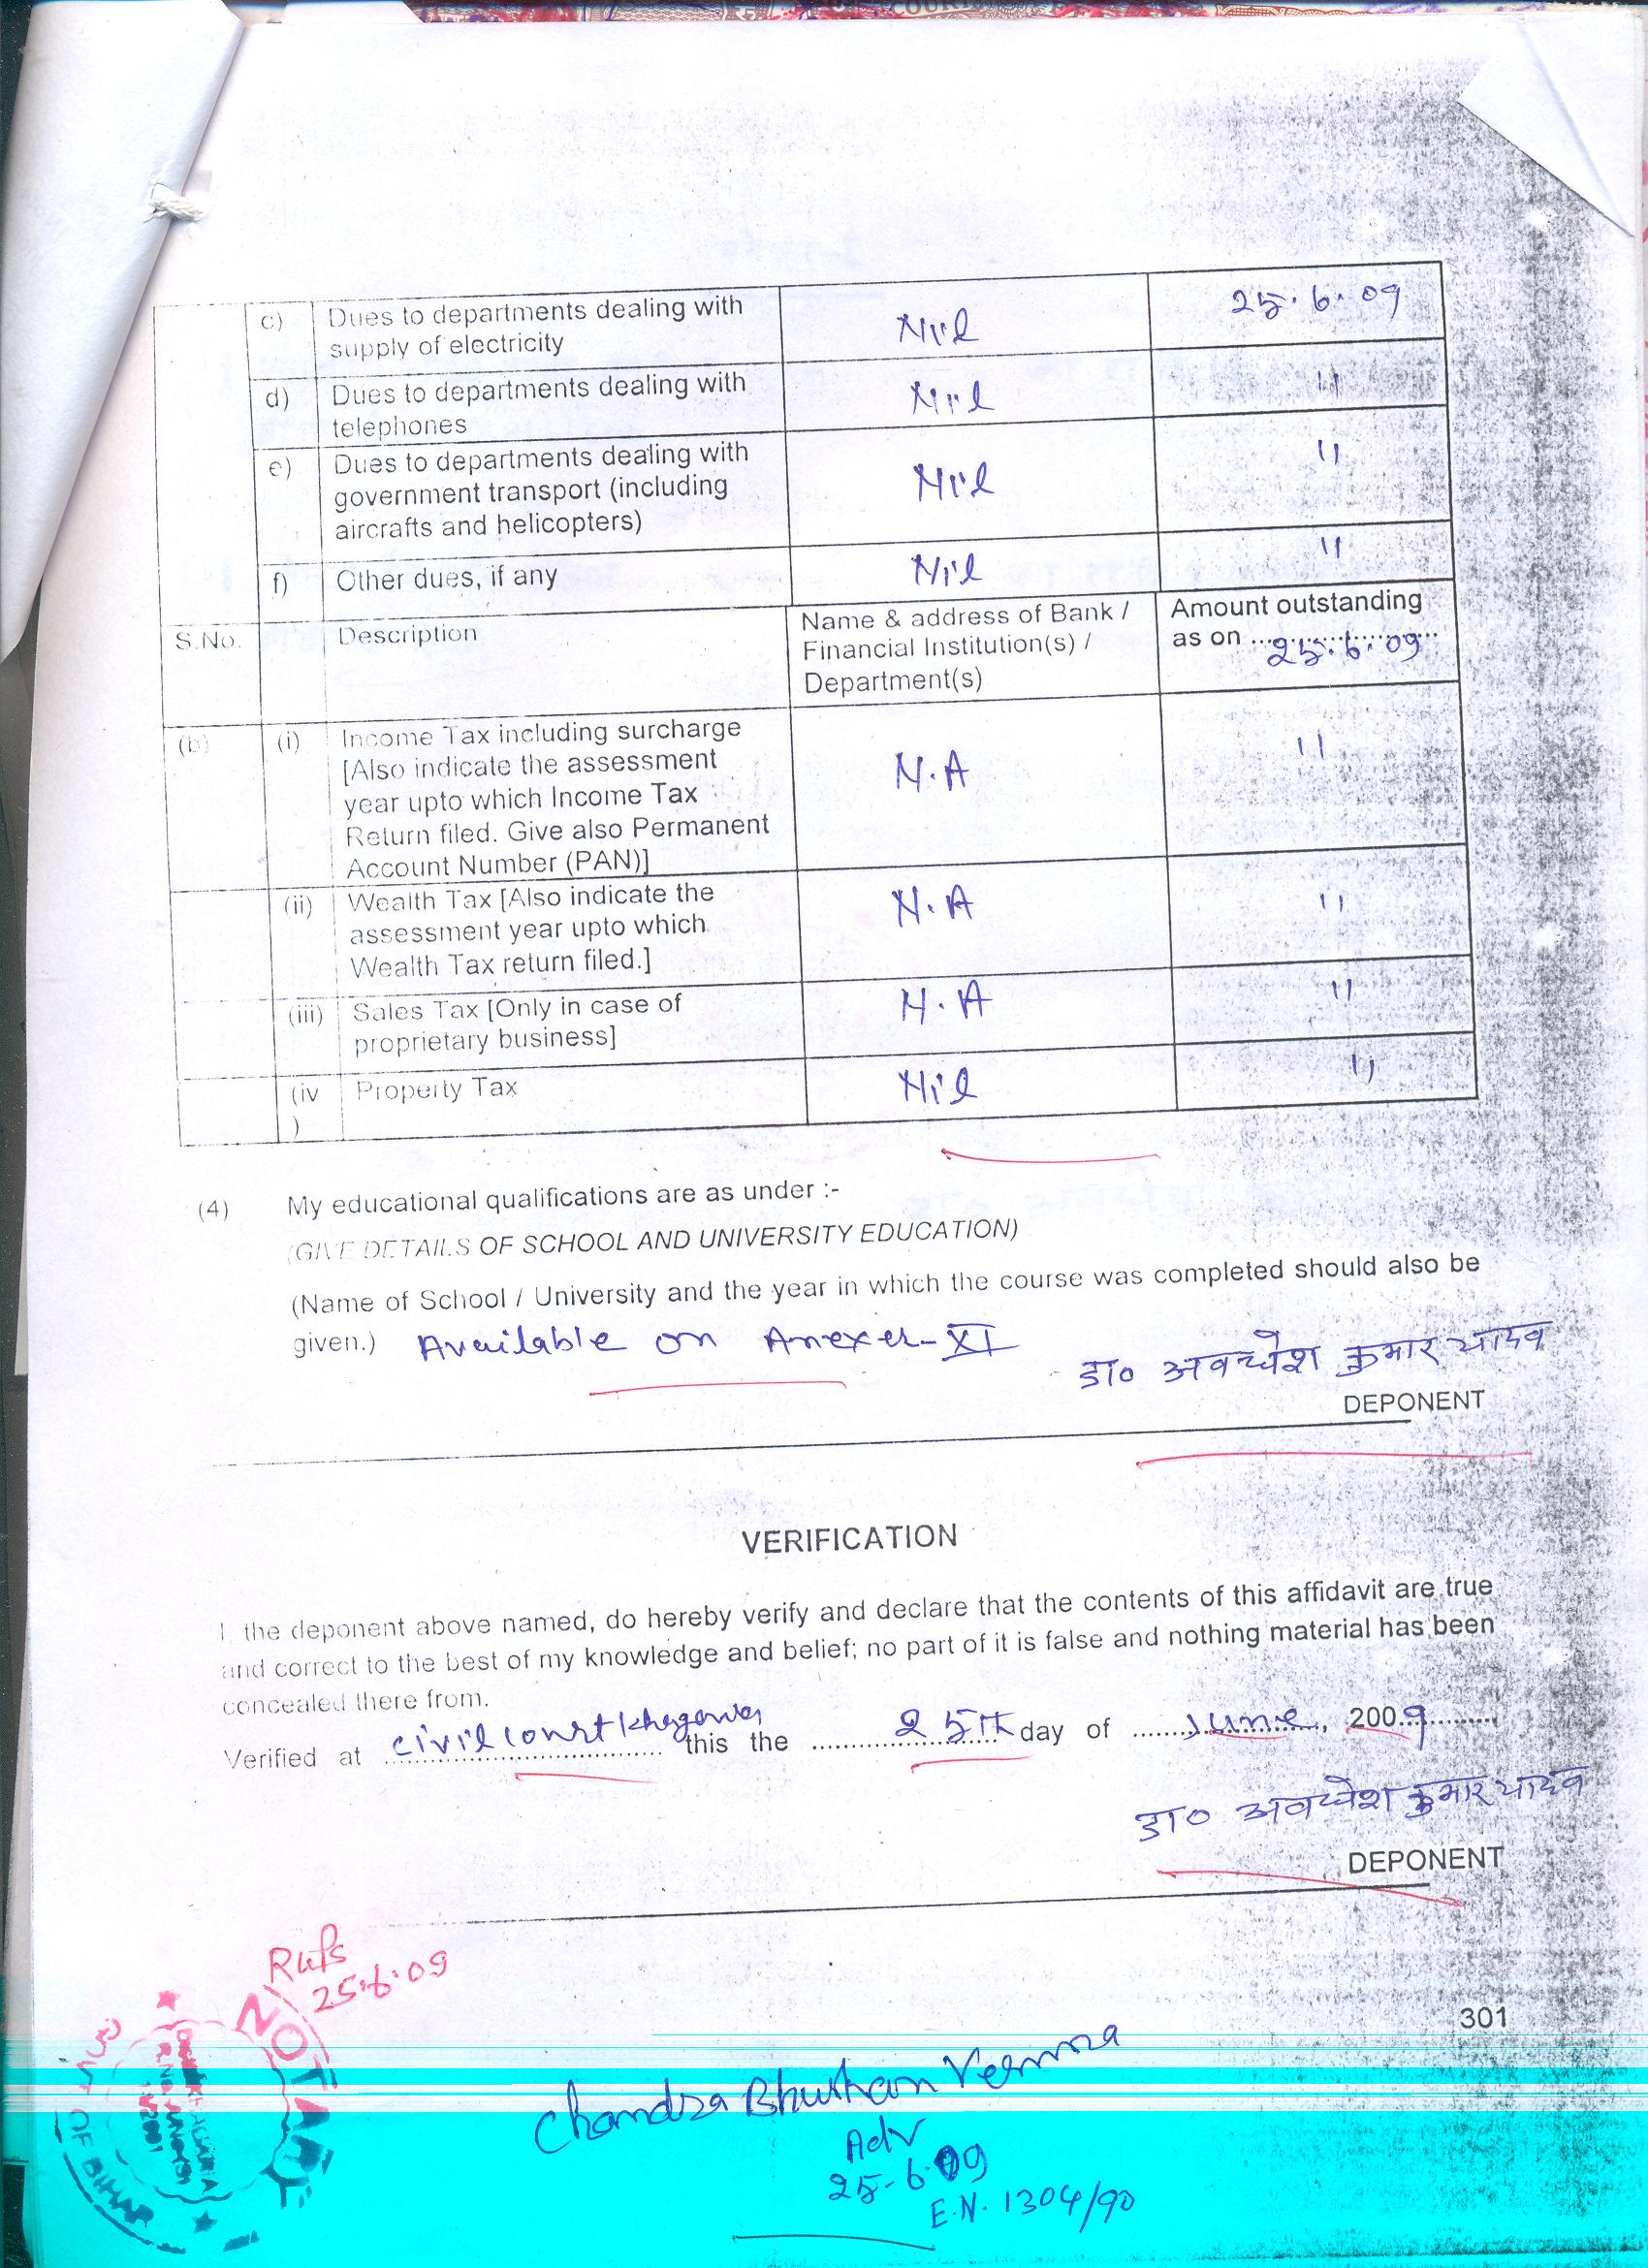 c) Dues to departments dealing with Nil 25.6.09
supply of electricity
d) Dues to departments dealing with Nil "
telephones
e) Dues to departments dealing with Nil "
government transport (including
aircrafts and helicopters)
f) Other dues, if any Nil "
S.No. Description Name & address of Bank / Amount outstanding
Financial Institution(s) / as on .......................
Department(s) 25.6.09
(b) (i) Income Tax including surcharge N.A "
[Also indicate the assessment
year upto which Income Tax
Return filed. Give also Permanent
Account Number (PAN)]
(ii) Wealth Tax [Also indicate the N.A "
assessment year upto which
Wealth Tax return filed.]
(iii) Sales Tax [Only in case of N.A "
proprietary business]
(iv Property Tax Nil "
)
(4) My educational qualifications are as under :-
(GIVE DETAILS OF SCHOOL AND UNIVERSITY EDUCATION)
(Name of School / University and the year in which the course was completed should also be
given.) Available on Anexer-XI
डा० अवधेश कुमार यादव
DEPONENT
VERIFICATION
I, the deponent above named, do hereby verify and declare that the contents of this affidavit are true
and correct to the best of my knowledge and belief; no part of it is false and nothing material has been
concealed there from.
Verified at civil court this the 25th day of June, 2009
डा० अवधेश कुमार यादव
DEPONENT
25.6.09
NOTARY
OF BIHAR
301
Chandra Bhushan Verma
Adv
25-6-09
E.N. 1304/90